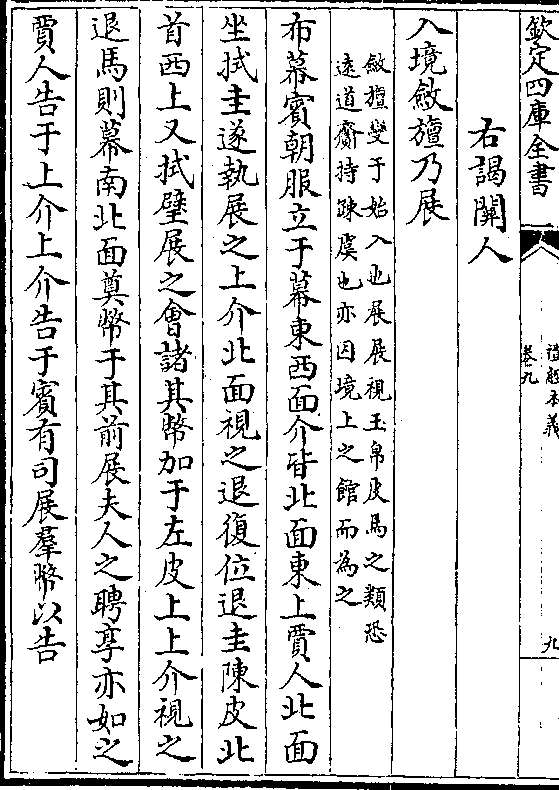 欽定四庫全書
禮經本義
卷九
九
右謁關人
入境斂旜乃展
斂旜變于始入也展展視玉帛皮馬之類恐
遠道齎持疎虞也亦因境上之館而為之
布幕賓朝服立于幕東西面介皆北面東上賈人北面
坐拭圭遂執展之上介北面視之退復位退圭陳皮北
首西上又拭璧展之會諸其幣加于左皮上上介視之
退馬則幕南北面奠幣于其前展夫人之聘享亦如之
賈人告于上介上介告于賓有司展羣幣以告